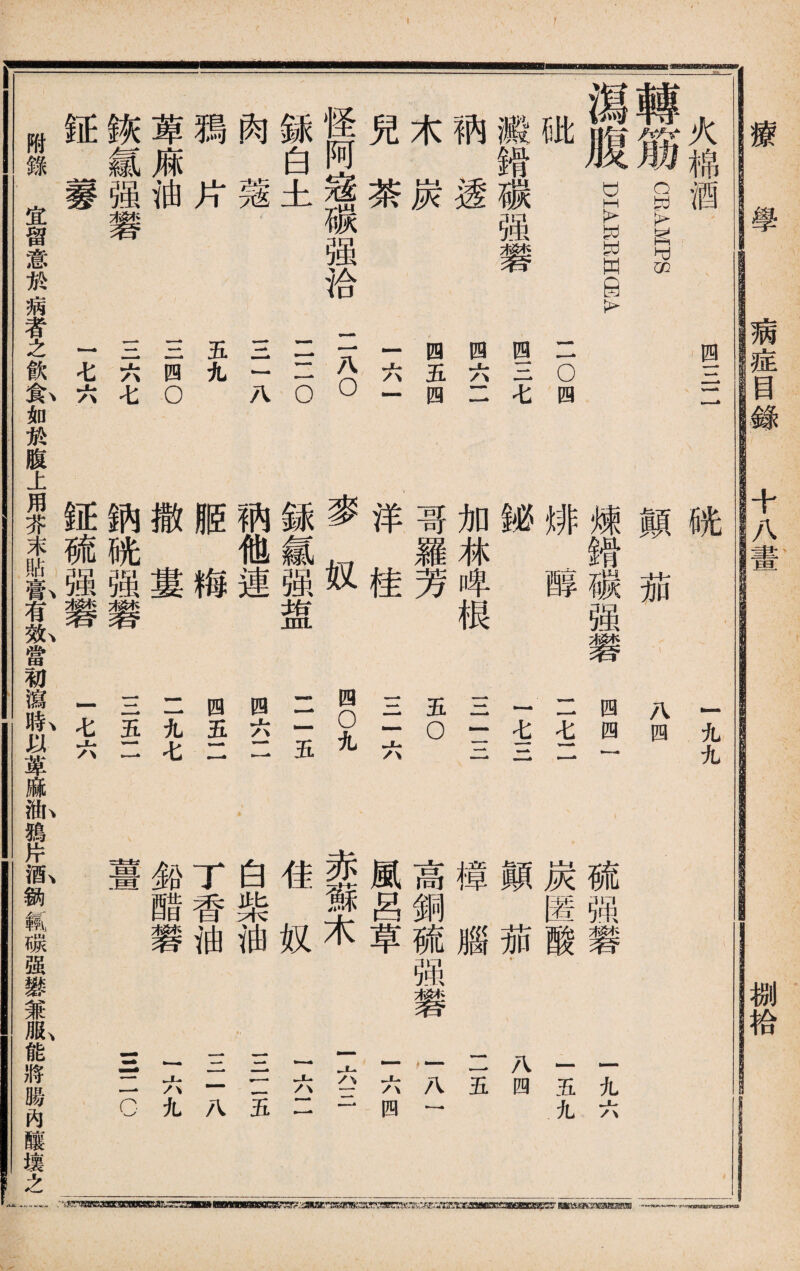 療學 病症目錄 十八畫 捌拾
火棉酒 四三二 硄 一九九
轉筋 CRAMPS 顛茄 八四
瀉腹 DIARRHŒA 煉鎉碳强礬 四四一 硫强礬 一九六
砒 二〇四 㶿醇 二七二 炭匿酸 一五九
澱鎉碳强礬 四三七 鉍 一七三 顛茄 八四
衲透 四六二 加林啤根 三一三 樟腦 二五
木炭 四五四 哥羅芳 五〇 高銅硫强礬 一八一
兒茶 一六一 洋桂 三一六 風呂草 一六四
怪阿寇碳强洽 二八〇 麥奴 四〇九 赤蘇木 一六三
銾白土 二二〇 銾氯强盬 二一五 佳奴 一六二
肉蔻 三一八 衲他連 四六二 白柴油 三二五
鴉片 五九 脛梅 四五二 丁香油 三一八
萆麻油 三四〇 撒婁 二九七 鉛醋礬 一六九
鋏氯强礬 三六七 鈉硄强礬 三五二 薑 三二〇
鉦 一七六 鉦硫强礬 一七六
附錄 宜留意於病者之飲食、如於腹上用芥末貼膏、有效、當初瀉時、以萆麻油、鴉片酒、鈉氧碳强礬兼服、能將腸內釀壞之